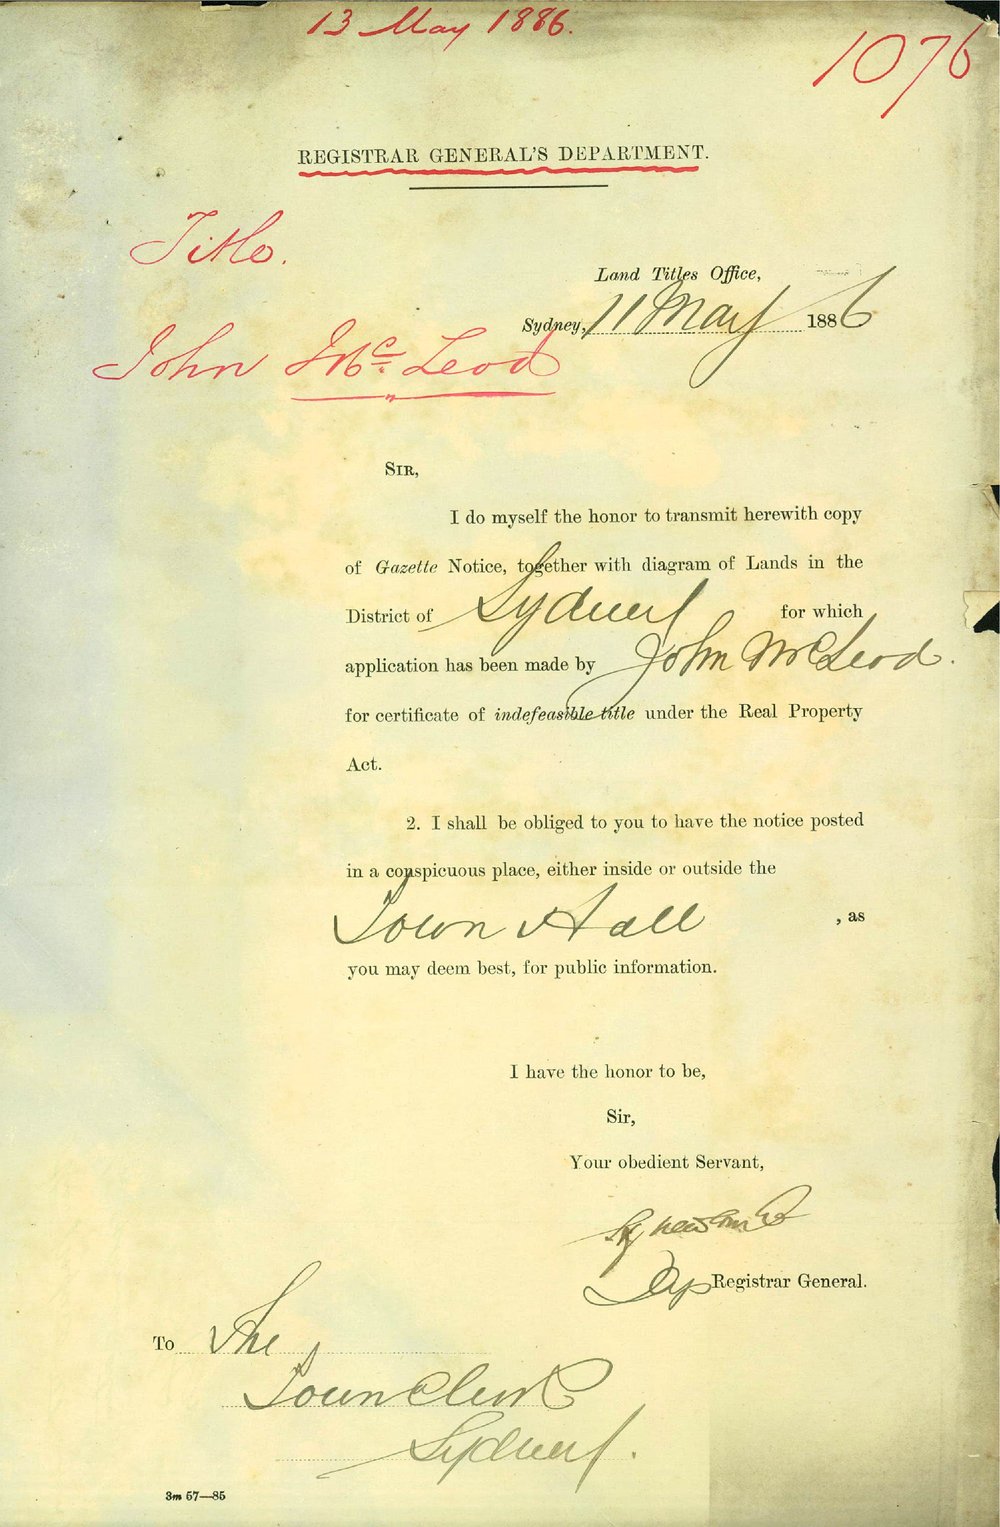 13 May 1886.
1076
REGISTRAR GENERAL'S DEPARTMENT.
Title.
Land Titles Office,
Sydney, 11 May 1886
John McLeod
SIR,
I do myself the honor to transmit herewith copy
of Gazette Notice, together with diagram of Lands in the
District of Sydney for which
application has been made by John McLeod.
for certificate of indefeasible title under the Real Property
Act.
2. I shall be obliged to you to have the notice posted
in a conspicuous place, either inside or outside the
Town Hall , as
you may deem best, for public information.
I have the honor to be,
Sir,
Your obedient Servant,
Dep Registrar General.
To The
Town Clerk
Sydney.
3m 57—85